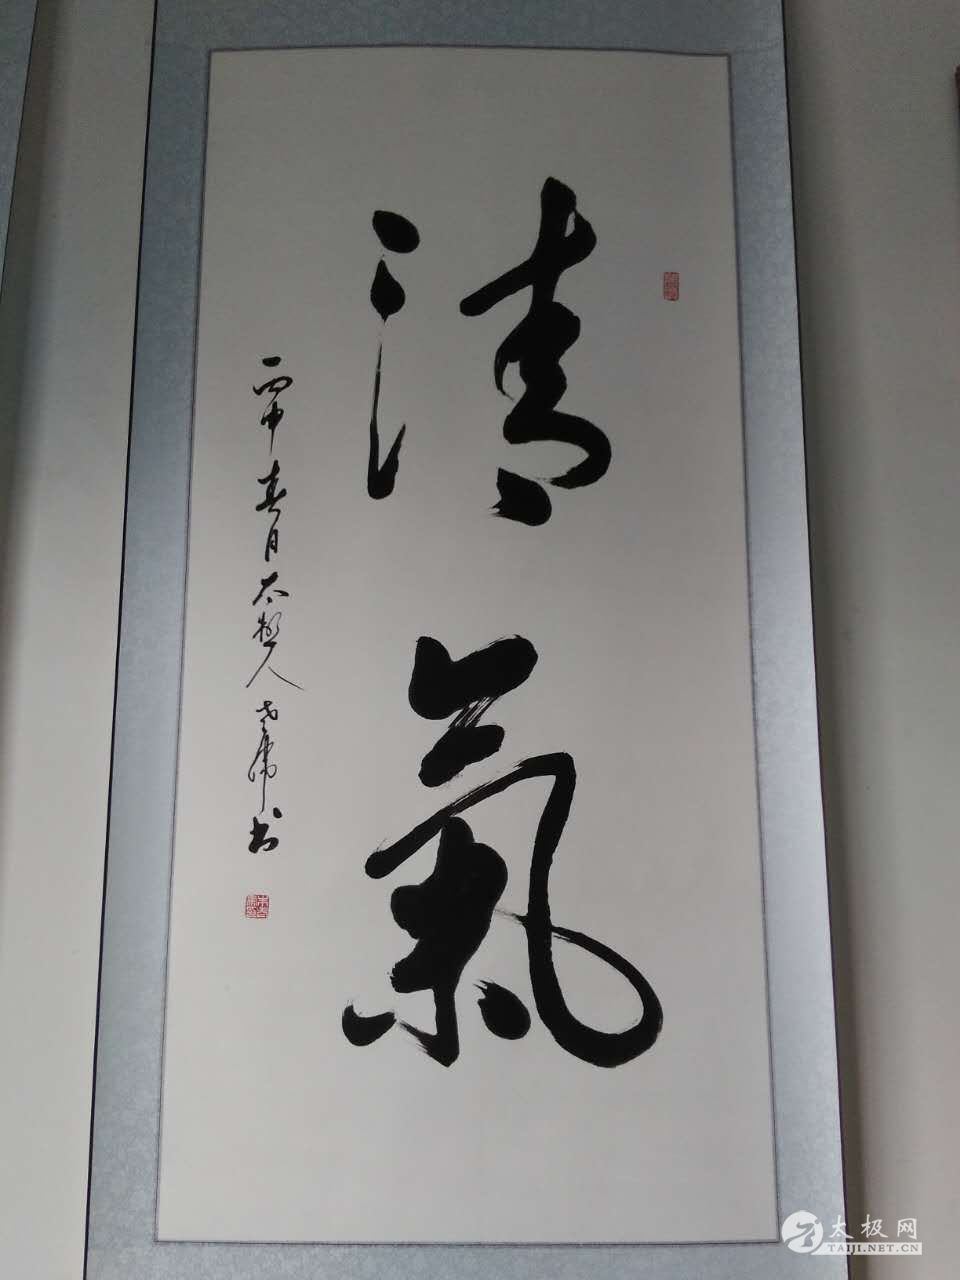 清氣
丙申春月太極人
書
太极网
TAIJI.NET.CN